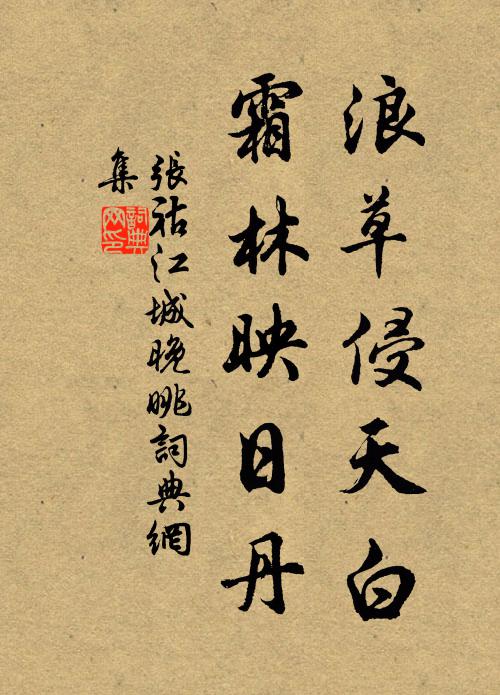 浪草侵天白
霜林映日丹
張祜江城晚眺詞典網
集
詞典
网印